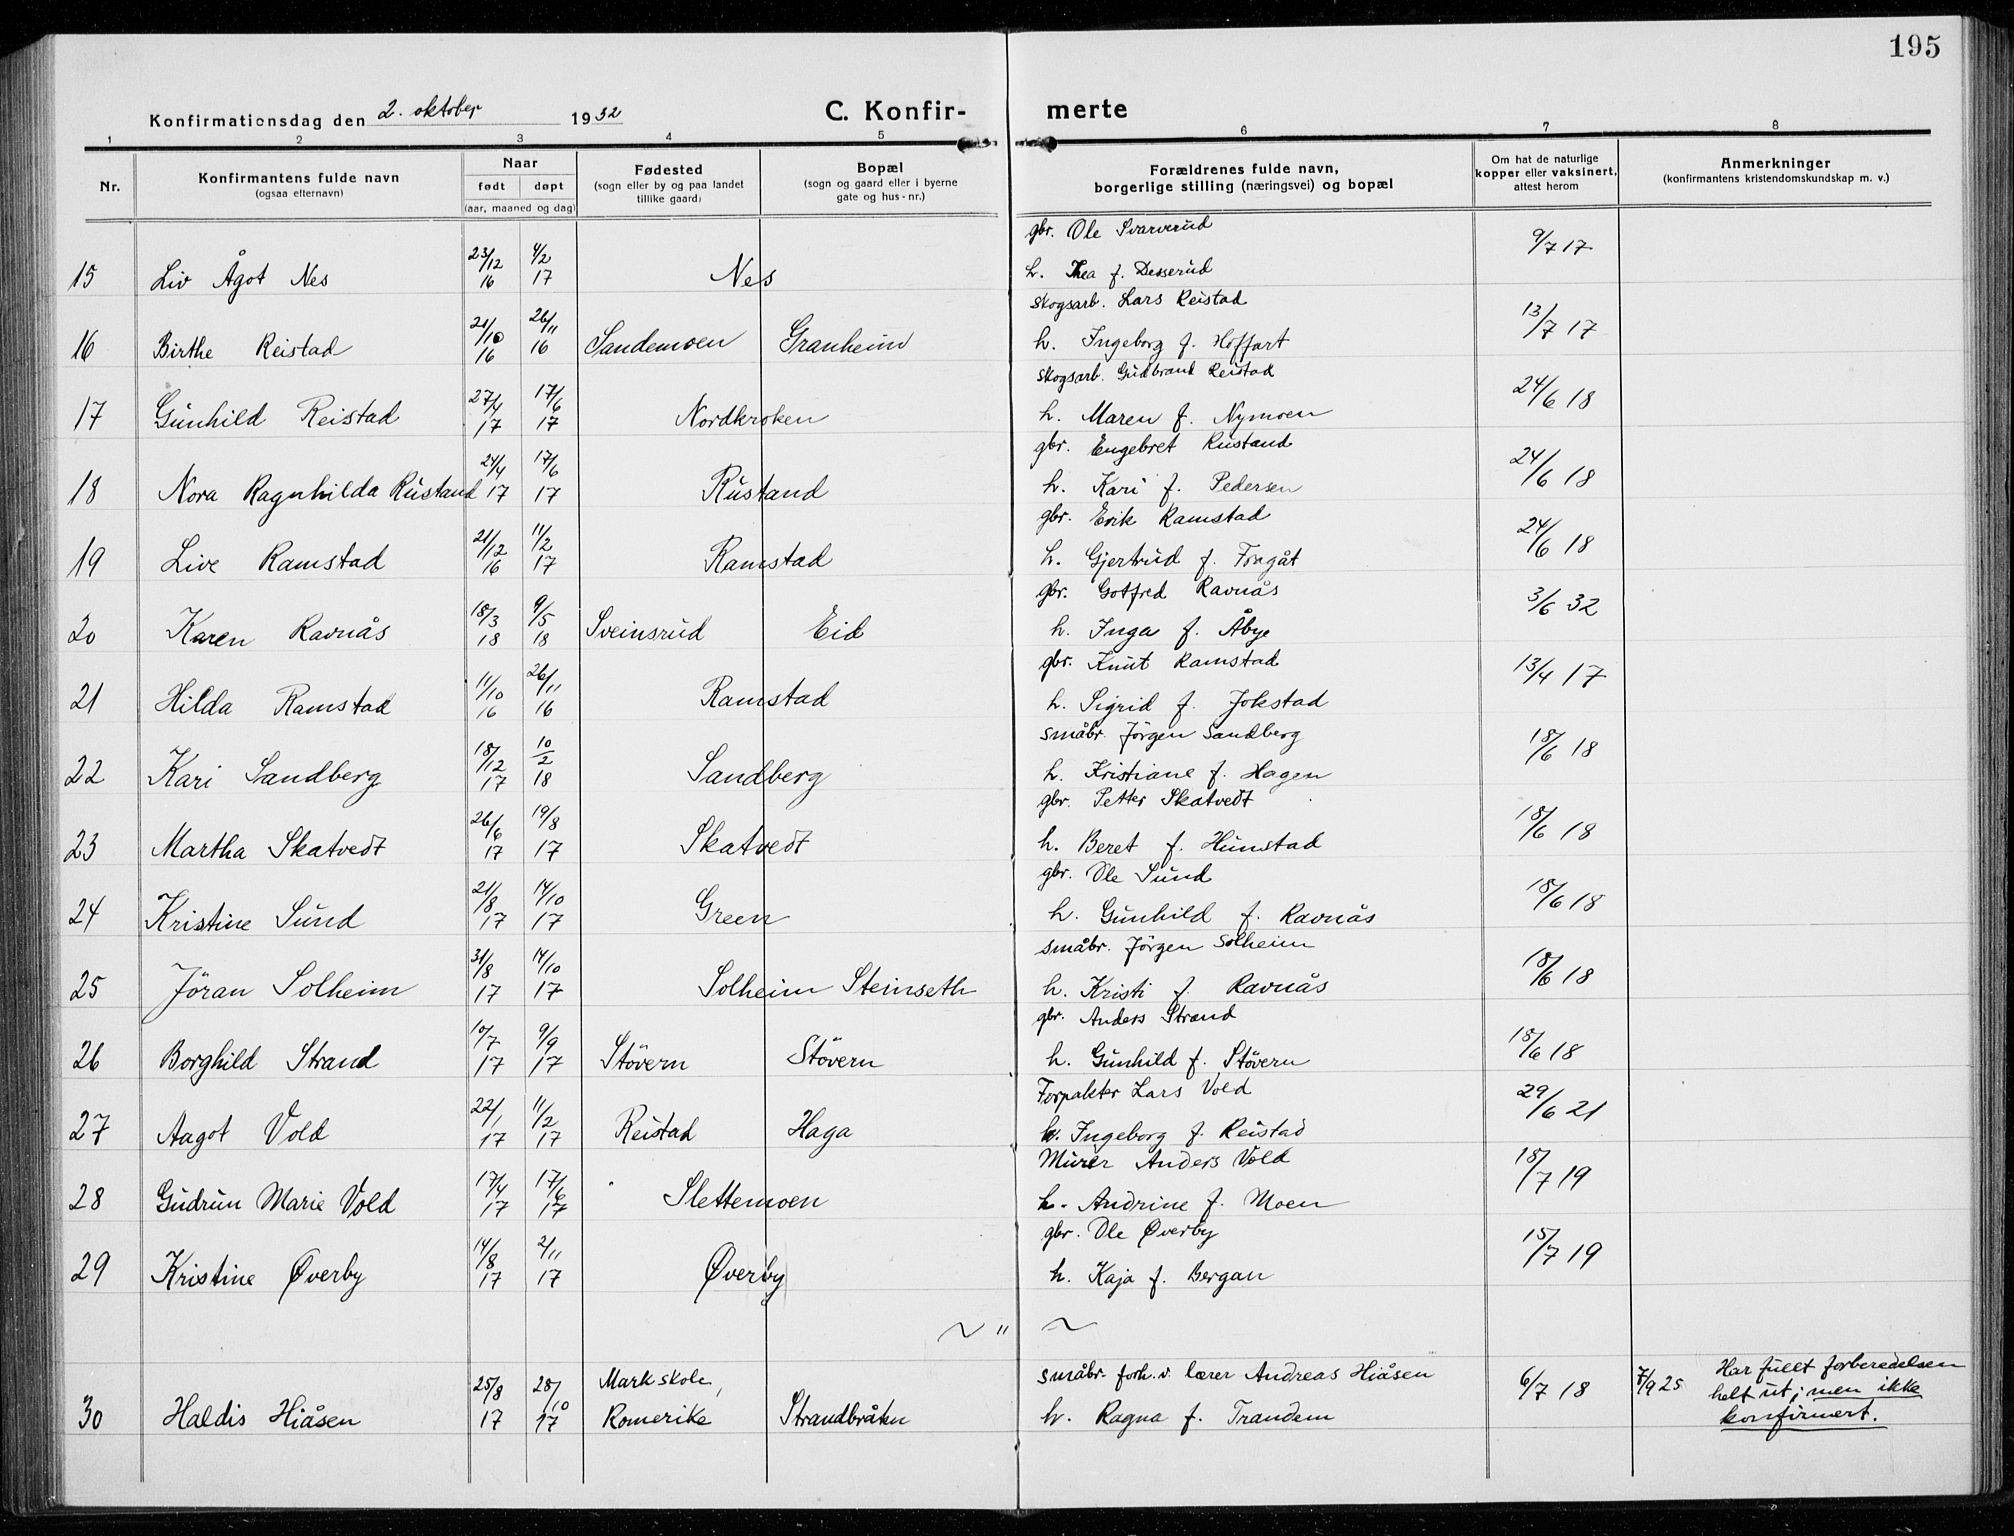 195
Konfirmationsdag den 2. oktober 1932 C. Konfir- merte
1 2 3 4 5 6 7 8
Nr. Konfirmantens fulde navn (ogsaa efternavn) Naar født døpt (aar, maaned og dag) Fødested (sogn eller by og paa landet tillike gaard) Bopæl (sogn og gaard eller i byerne gate og hus-nr.) Forældrenes fulde navn, borgerlige stilling (næringsvei) og bopæl Om hat de naturlige kopper eller vaksinert, attest herom Anmerkninger (konfirmantens kristendomskundskap m. v.)
gbr. Ole Svarverud
15 Liv Ågot Nes 23/12 16 4/2 17 Nes h. Thea f. Desserud 9/7 17
skogsarb. Lars Reistad
16 Birthe Reistad 21/10 16 26/11 16 Sandemoen Granheim h. Ingeborg f. Hoffart 13/7 17
skogsarb. Gudbrand Reistad
17 Gunhild Reistad 27/4 17 17/6 17 Nordkroken h. Maren f. Nymoen 24/6 18
gbr. Engebret Rustand
18 Nora Ragnhilda Rustand 24/4 17 17/6 17 Rustand h. Kari f. Pedersen 24/6 18
gbr. Erik Ramstad
19 Live Ramstad 21/12 16 11/2 17 Ramstad h. Gjertrud f. Frøgåt 24/6 18
gbr. Gotfred Ravnås
20 Karen Ravnås 18/3 18 9/5 18 Sveinsrud Eid h. Inga f. Åbye 3/6 32
gbr. Knut Ramstad
21 Hilda Ramstad 11/10 16 26/11 16 Ramstad h. Sigrid f. Jokstad 13/4 17
småbr. Jörgen Sandberg
22 Kari Sandberg 18/12 17 10/2 18 Sandberg h. Kristiane f. Hagen 18/6 18
gbr. Petter Skatvedt
23 Martha Skatvedt 26/6 17 19/8 17 Skatvedt h. Beret f. Hunstad 18/6 18
gbr. Ole Sund
24 Kristine Sund 21/8 17 14/10 17 Green h. Gunhild f. Ravnås 18/6 18
småbr. Jörgen Solheim
25 Jöran Solheim 31/8 17 14/10 17 Solheim Steinseth h. Kristi f. Ravnås 18/6 18
gbr. Anders Strand
26 Borghild Strand 10/7 17 9/9 17 Stövern Stövern h. Gunhild f. Stövern 18/6 18
Forpakter Lars Vold
27 Aagot Vold 22/1 17 11/2 17 Reistad Haga h. Ingeborg f. Reistad 29/6 21
Murer Anders Vold
28 Gudrun Marie Vold 17/4 17 17/6 17 Slettemoen h. Andrine f. Moen 18/7 19
gbr. Ole Øverby
29 Kristine Øverby 14/8 17 2/11 17 Øverby h. Kaja f. Bergan 15/7 19
~ " ~
småbr. forh.v. lærer Andreas Hiåsen
30 Haldis Hiåsen 25/8 17 28/10 17 Mark skole, Romerike Strandbråten h. Ragna f. Trandem 6/7 18 7/9 25 Har fullt forberedelsen
helt ut; men ikke
konfirmert.